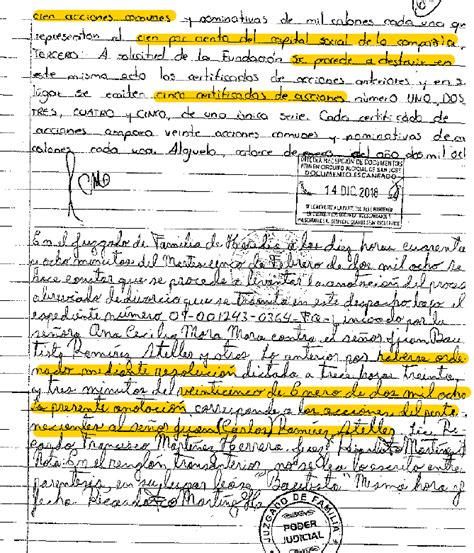 cien acciones comunes y nominativas de mil colones cada una que
representan al cien por ciento del capital social de la compañía.
TERCERO: A solicitud de la Fundación se procede a destruir en
este mismo acto los certificados de acciones anteriores y en su
lugar se emiten cinco certificados de acciones número UNO, DOS
TRES, CUATRO y CINCO, de una única serie. Cada certificado de
acciones ampara veinte acciones comunes y nominativas de
colones cada una. Alajuela, catorce de enero del año dos mil och
RECEPCION DE DOCUMENTOS
CIRCUITO JUDICIAL DE SAN JOSE
DOCUMENTO ESCANEADO
14 DIC 2018
En el Juzgado de Familia de Heredia a las diez horas cuarenta
y ocho minutos del Martes cinco de Febrero de dos mil ocho se
hace constar que se procede a levantar la anotación del proceso
abreviado de divorcio que se tramita en este despacho bajo el
expediente número 07-001243-0364-FA- incoado por la
señora Ana Cecilia Mora Mora contra el señor Juan Bau
tista Ramírez Steller y otros. Lo anterior por haberse orde
nado mediante resolución dictada a trece horas treinta
y tres minutos del veinticinco de Enero de dos mil ocho
la presente anotación corresponde a las acciones del perte
necientes al señor Juan (Carlos) Ramírez Steller. Lic. Ri
cardo Francisco Martínez Herrera.
En el renglón trasanterior, no se lea lo escrito entre
paréntesis, en su lugar léase "Bautista" Misma hora y
fecha
JUZGADO DE FAMILIA
PODER
JUDICIAL